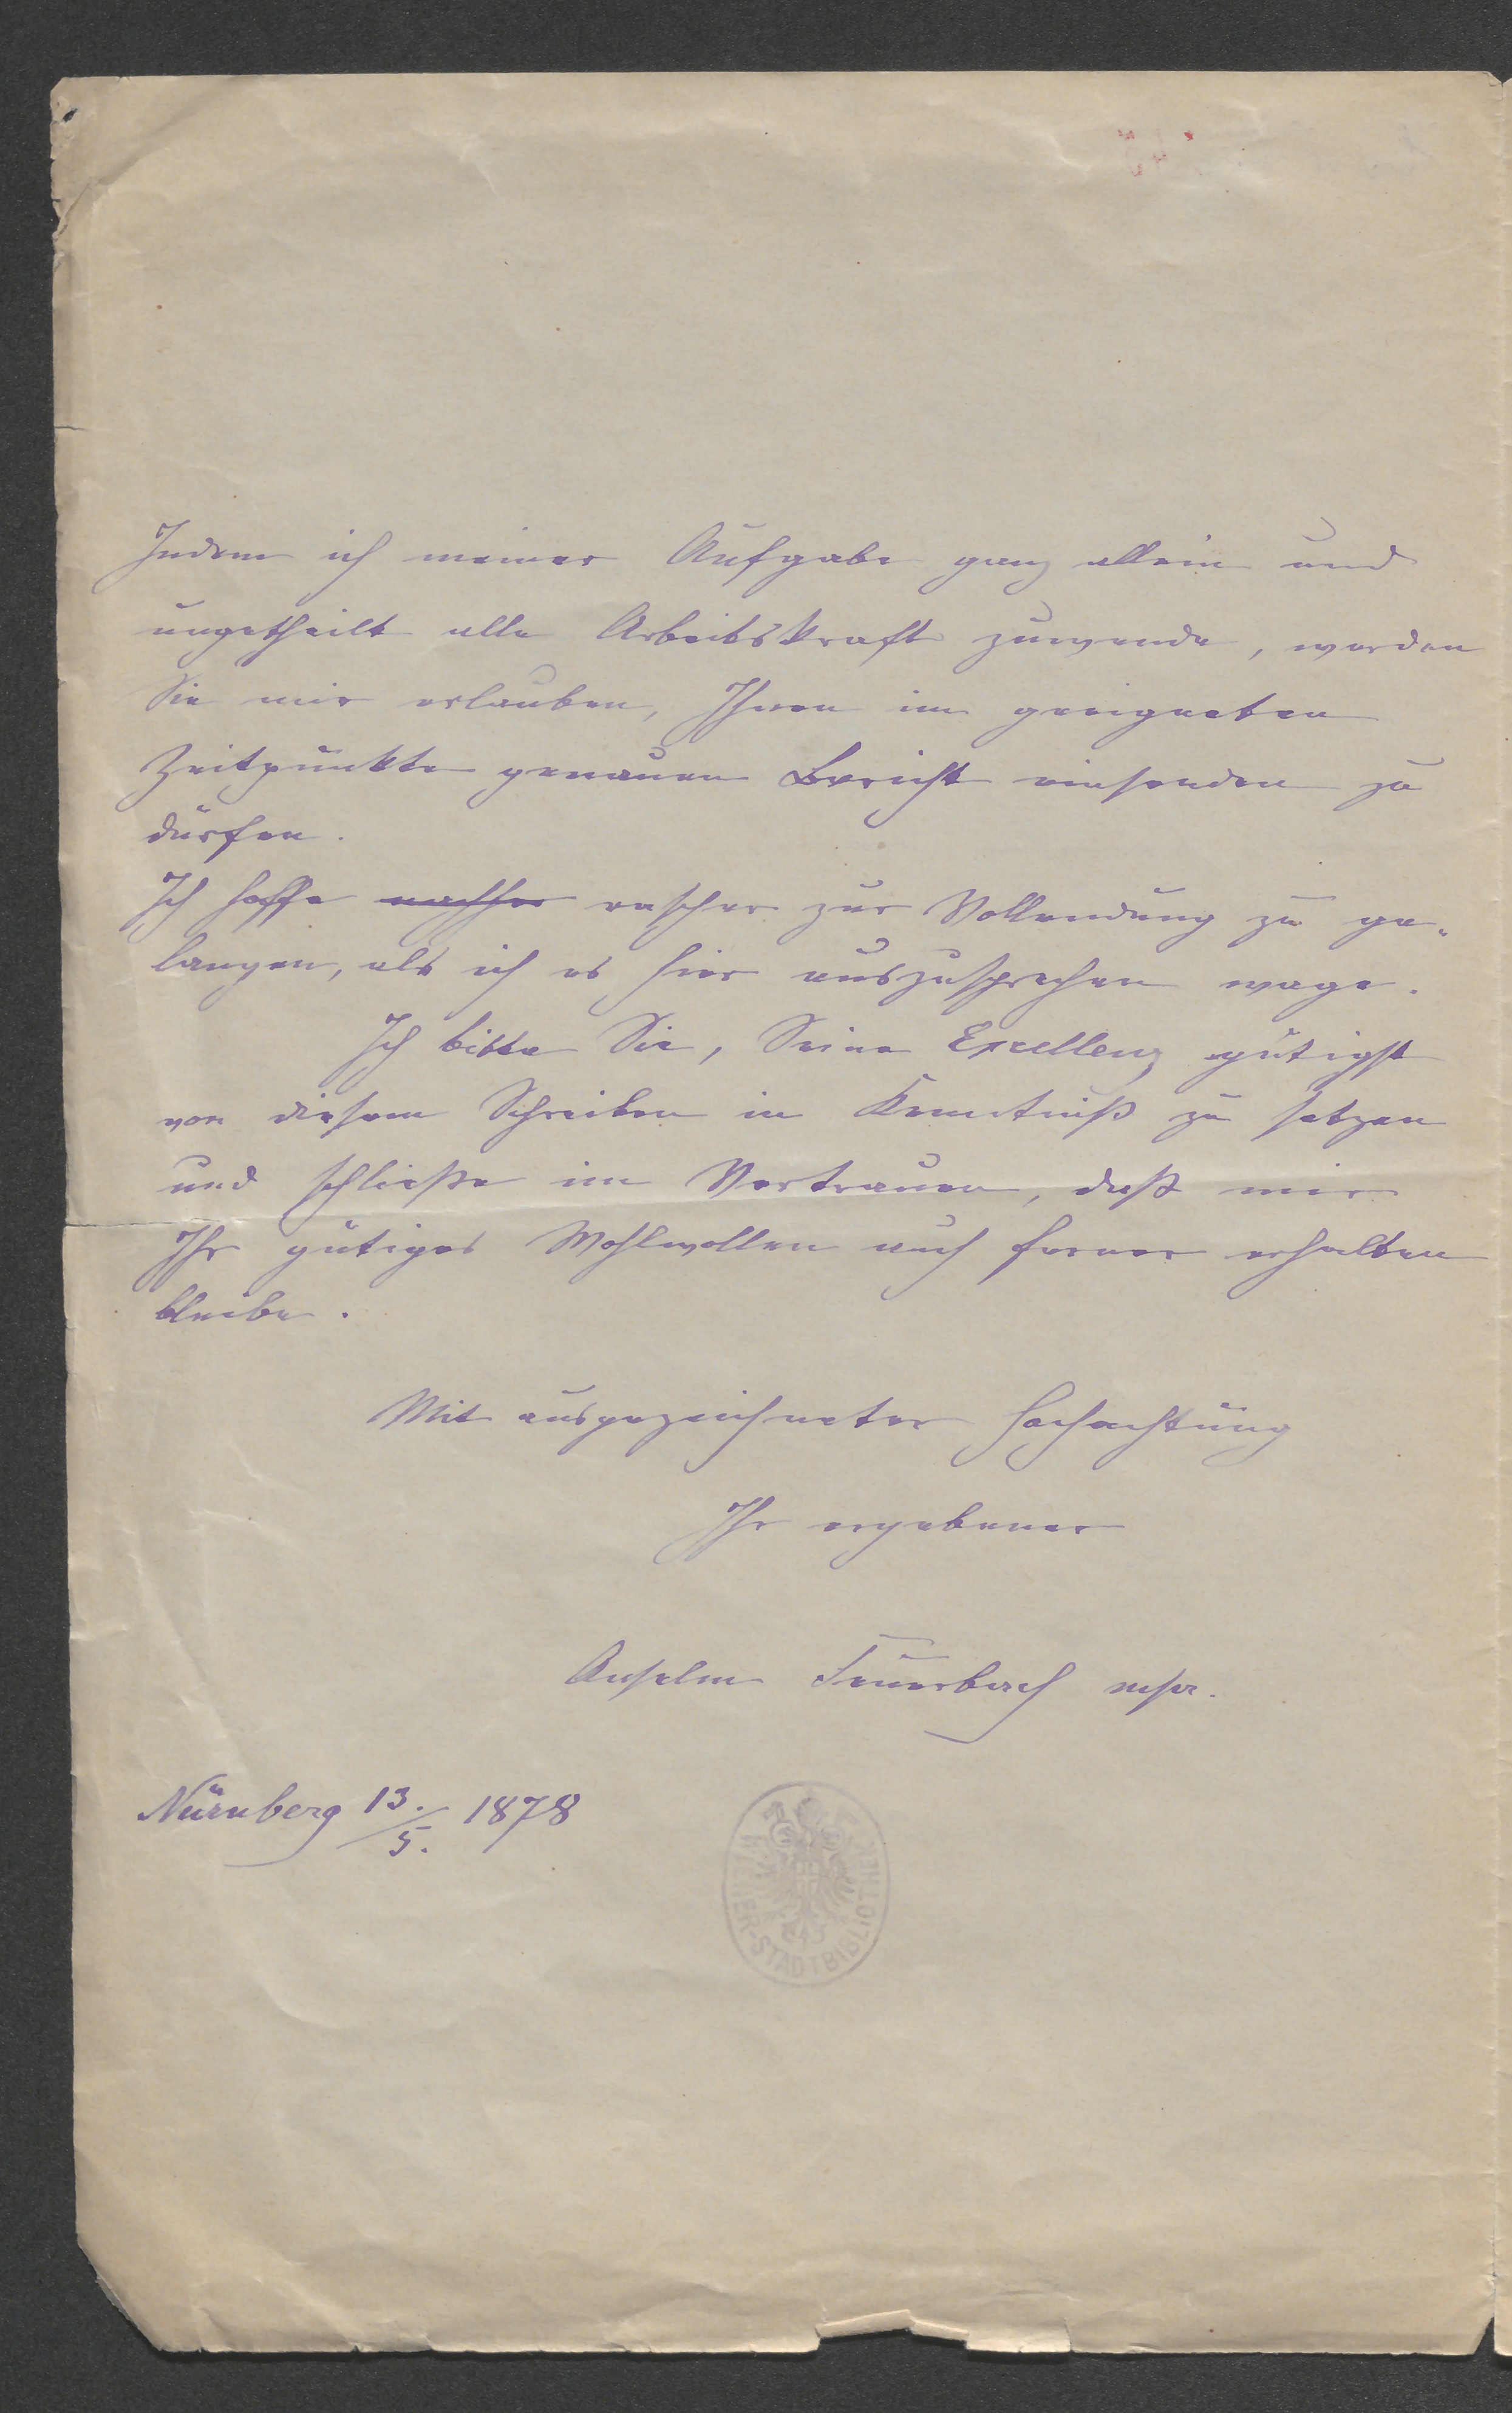 Indem ich meiner Aufgabe ganz allein und
ungetheilt alle Arbeitskraft zuwende, werden
Sie mir erlauben, Ihnen im geeigneten
Zeitpunkte genauen Bericht einsenden zu
dürfen.
Ich hoffe nachher rascher zur Vollendung zu ge„
langen, als ich es hier auszusprechen wage.
Ich bitte Sie, Seine Excellenz gütigst
von diesem Schreiben in Kenntniß zu setzen
und schließe im Vertrauen, daß mir
Ihr gütiges Wohlwollen auch ferner erhalten
bleibe.
Mit ausgezeichneter Hochachtung
Ihr ergebener
Anselm Feuerbach mpr.
Nürnberg 13./5. 1878
WIENER-STADTBIBLIOTHEK